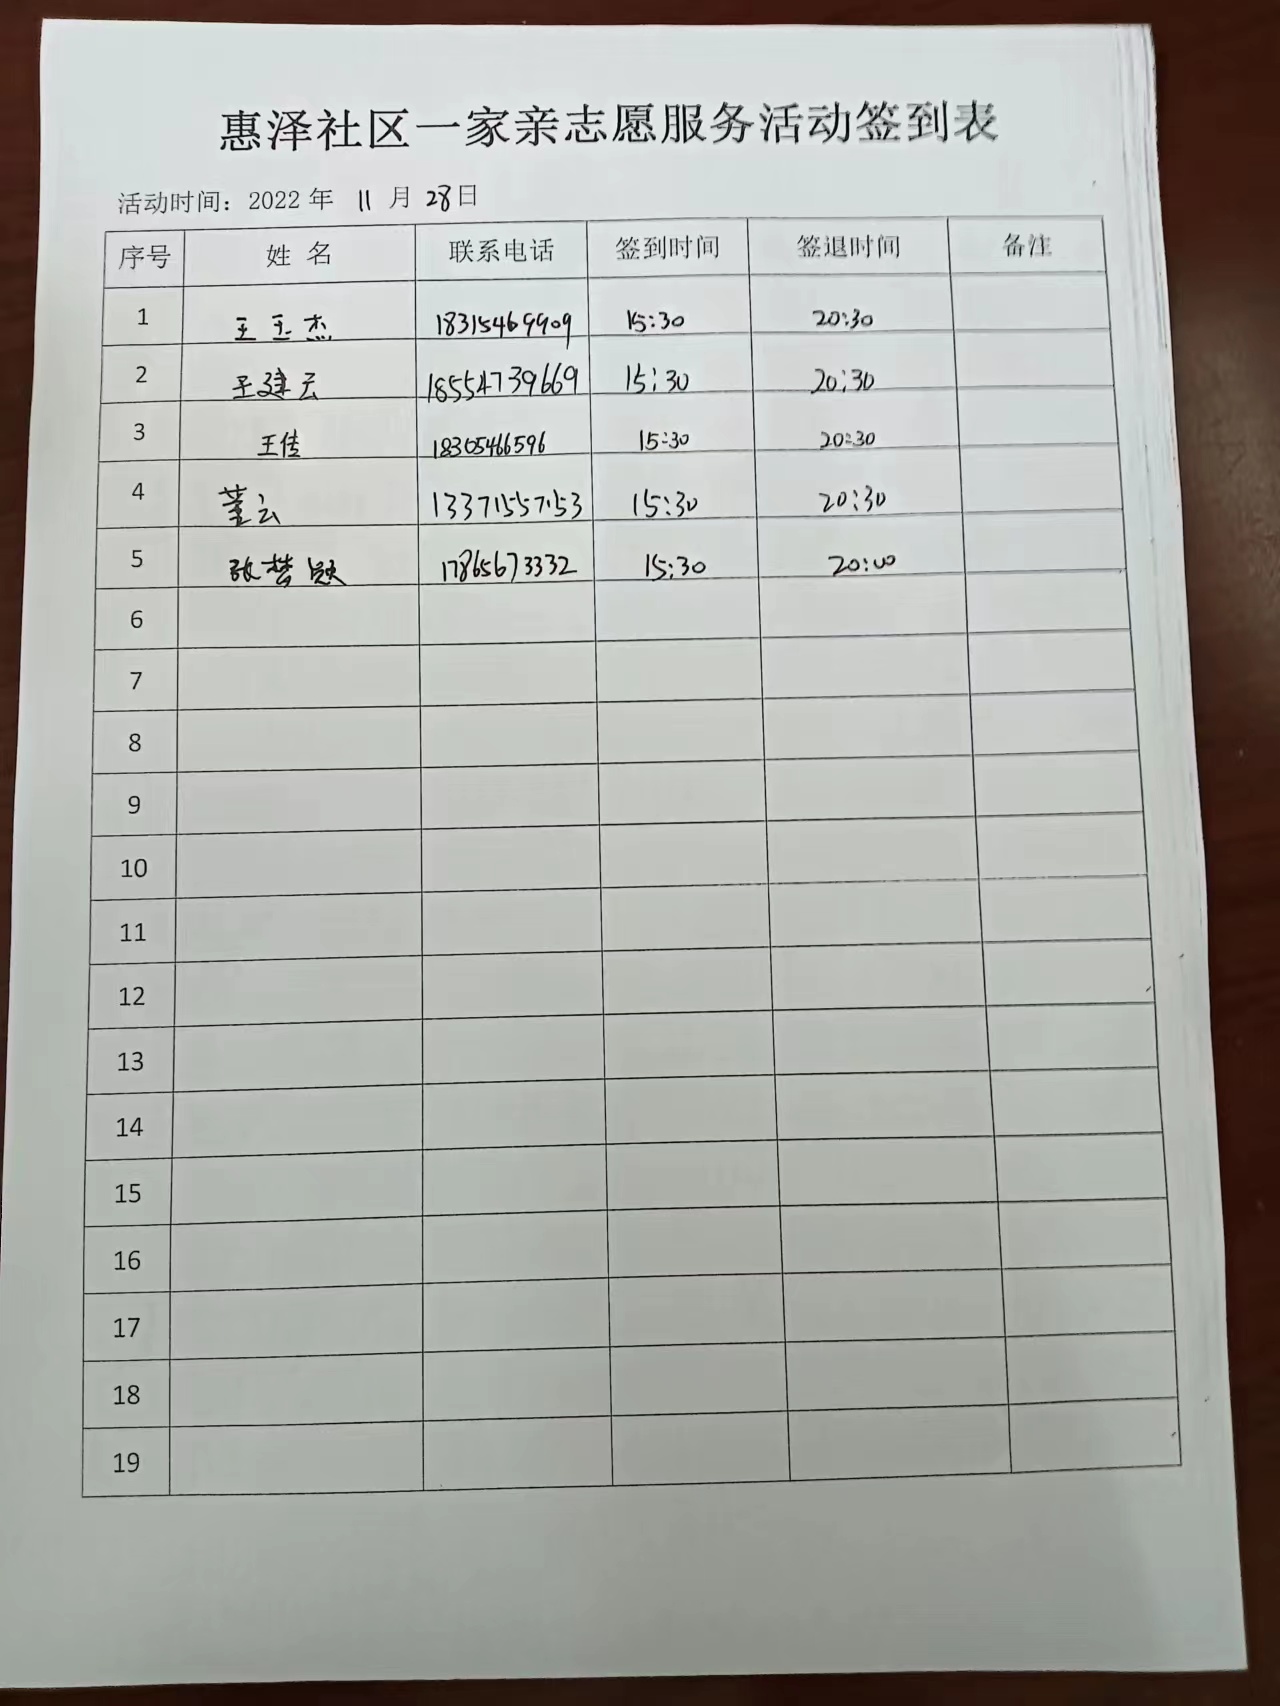 惠泽社区一家亲志愿服务活动签到表
活动时间：2022 年 11 月 28 日
序号 姓 名 联系电话 签到时间 签退时间 备注
1 王玉杰 18315469909 15:30 20:30
2 王建云 18554739669 15:30 20:30
3 王佳 18305466596 15:30 20:30
4 董云 13371557153 15:30 20:30
5 张梦颖 17865673332 15:30 20:00
6
7
8
9
10
11
12
13
14
15
16
17
18
19